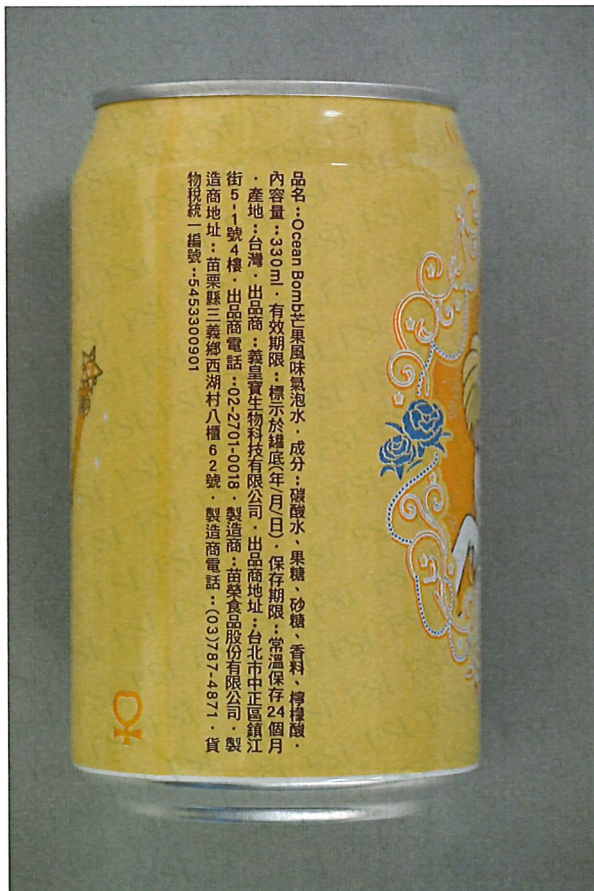 品名：Ocean Bomb芒果風味氣泡水．成分：碳酸水、果糖、砂糖、香料、檸檬酸．
內容量：330ml．有效期限：標示於罐底(年/月/日)．保存期限：常溫保存24個月
．產地：台灣．出品商：義皇寶生物科技有限公司．出品商地址：台北市中正區鎮江
街5-1號4樓．出品商電話：02-2701-0018．製造商：苗榮食品股份有限公司．製
造商地址：苗栗縣三義鄉西湖村八櫃62號．製造商電話：(03)787-4871．貨
物稅統一編號：5453300901